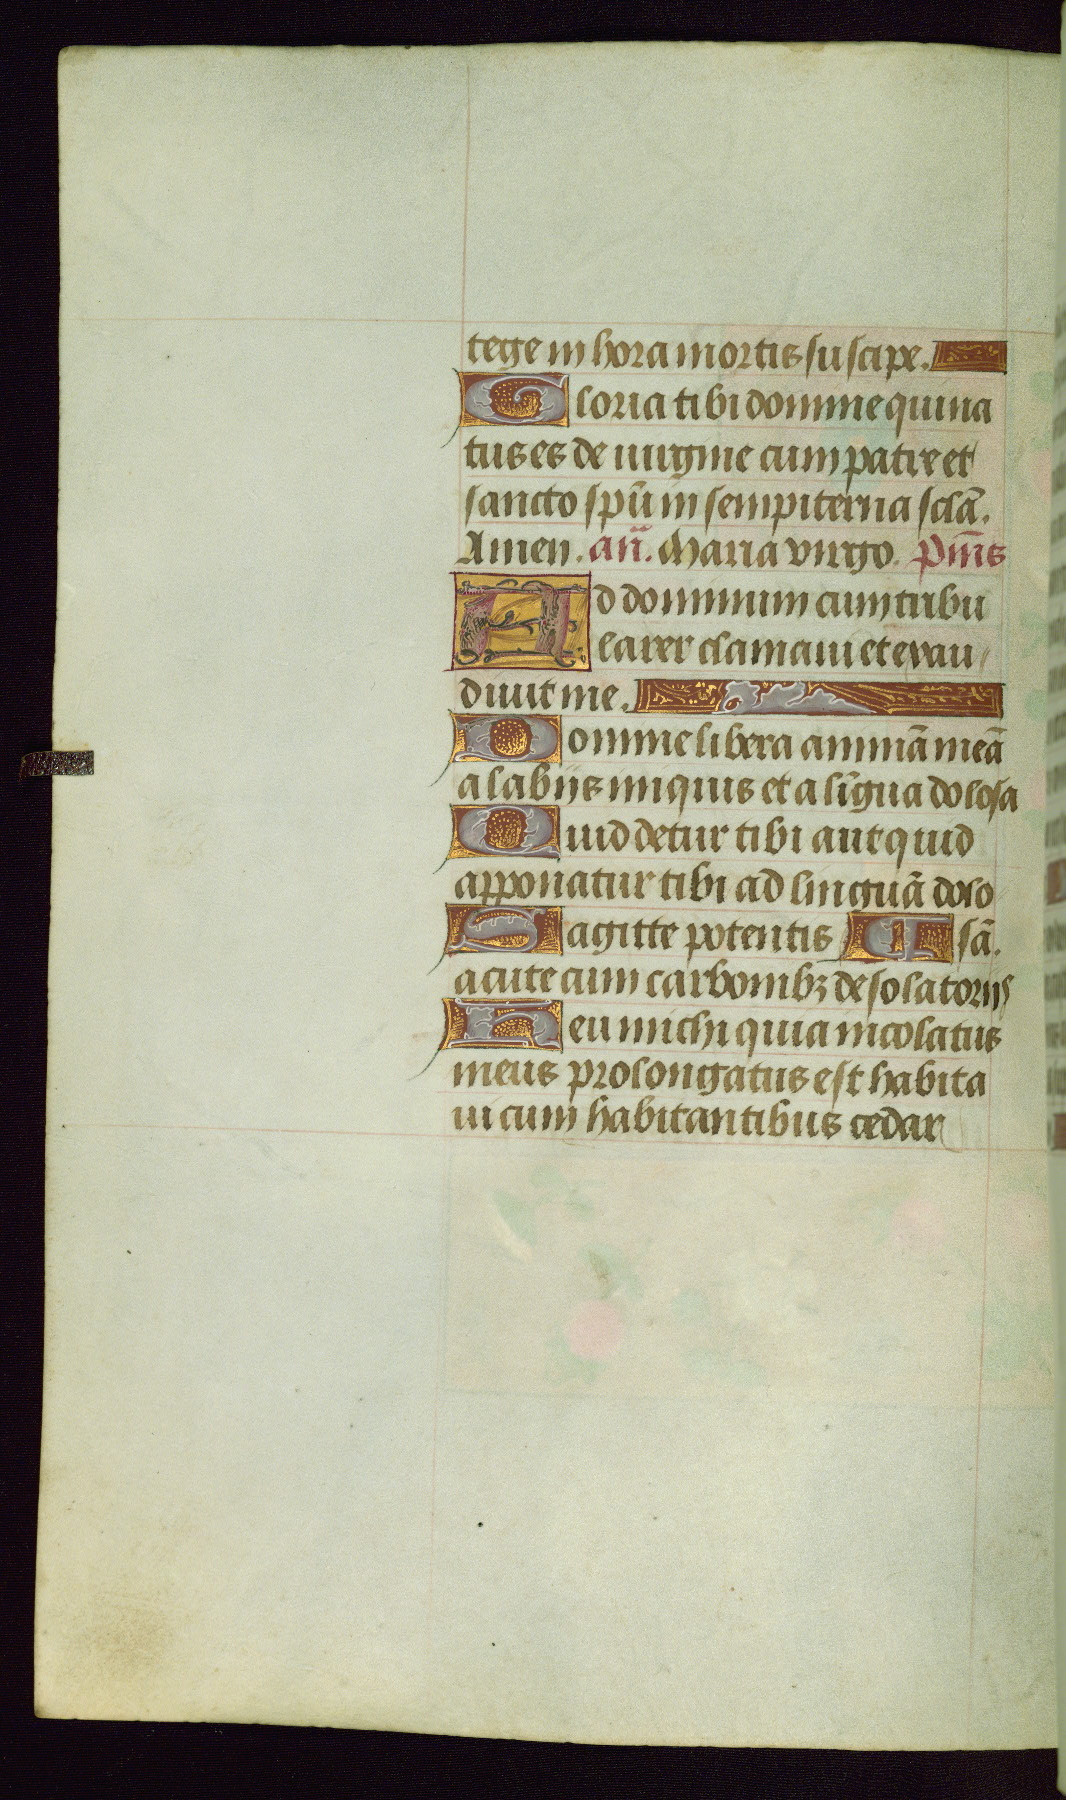 tege in hora mortis suscipe.
Gloria tibi domine qui na
tus es de uirgine cum patre et
sancto spū in sempiterna sclā.
Amen. an̄. Maria virgo. Pm̄s
Ad dominum cum tribu
larer clamaui et exau
diuit me.
Domine libera animā meā
a labijs iniquis et a līgua dolosa
Quid detur tibi aut quid
apponatur tibi ad linguā dolo
Sagitte potentis ¶ sā.
acute cum carbonibꝫ desolatorijs
Heu michi quia incolatus
meus prolongatus est habita
ui cum habitantibus cedar